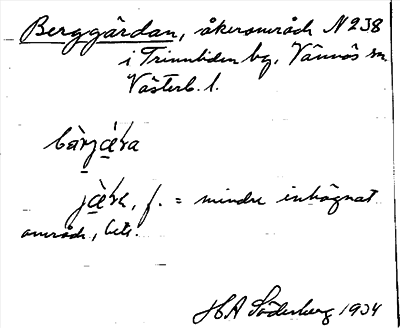 Berggärdan, åkerområde N 238
i Trinnliden by, Vännäs sn
Västerb. l.
mindre inhägnat
område, bete.
HA Söderberg 1934